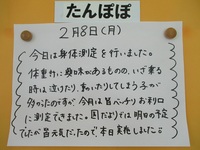 たんぽぽ
2月8日(月)
今日は身体測定を行いました。
体重計に興味があるものの、いざ乗る
時は泣いたり、動いたりしてしまう子が
多かったのですが今月は皆バッチリお利口
に測定できました。園だよりでは明日の予定
でしたが皆元気だったので本日実施しました